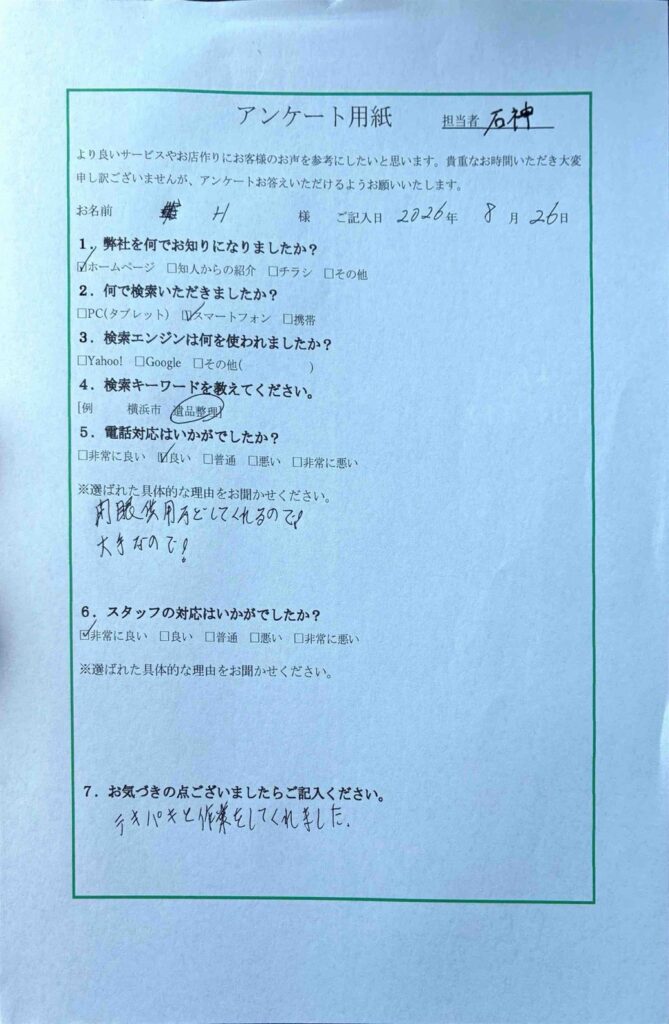 アンケート用紙 担当者 石神
より良いサービスやお店作りにお客様のお声を参考にしたいと思います。貴重なお時間いただき大変
申し訳ございませんが、アンケートお答えいただけるようお願いいたします。
お名前 H 様 ご記入日 2026年 8月 26日
1．弊社を何でお知りになりましたか？
☑ホームページ □知人からの紹介 □チラシ □その他
2．何で検索いただきましたか？
□PC(タブレット) ☑スマートフォン □携帯
3．検索エンジンは何を使われましたか？
□Yahoo! □Google □その他( )
4．検索キーワードを教えてください。
[例 横浜市 遺品整理]
5．電話対応はいかがでしたか？
□非常に良い ☑良い □普通 □悪い □非常に悪い
※選ばれた具体的な理由をお聞かせください。
開眼供用などしてくれるので!
大手なので!
6．スタッフの対応はいかがでしたか？
☑非常に良い □良い □普通 □悪い □非常に悪い
※選ばれた具体的な理由をお聞かせください。
7．お気づきの点ございましたらご記入ください。
テキパキと作業をしてくれました.